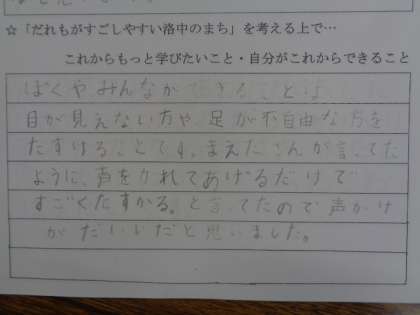 ☆「だれもがすごしやすい洛中のまち」を考える上で…
これからもっと学びたいこと・自分がこれからできること
ぼくやみんなができることは
目が見えない方や、足が不自由な方を
たすけることです。まえださんが言ってた
ように、声をかけてあげるだけで
すごくたすかる。と言ってたので声かけ
がだいじだと思いました。